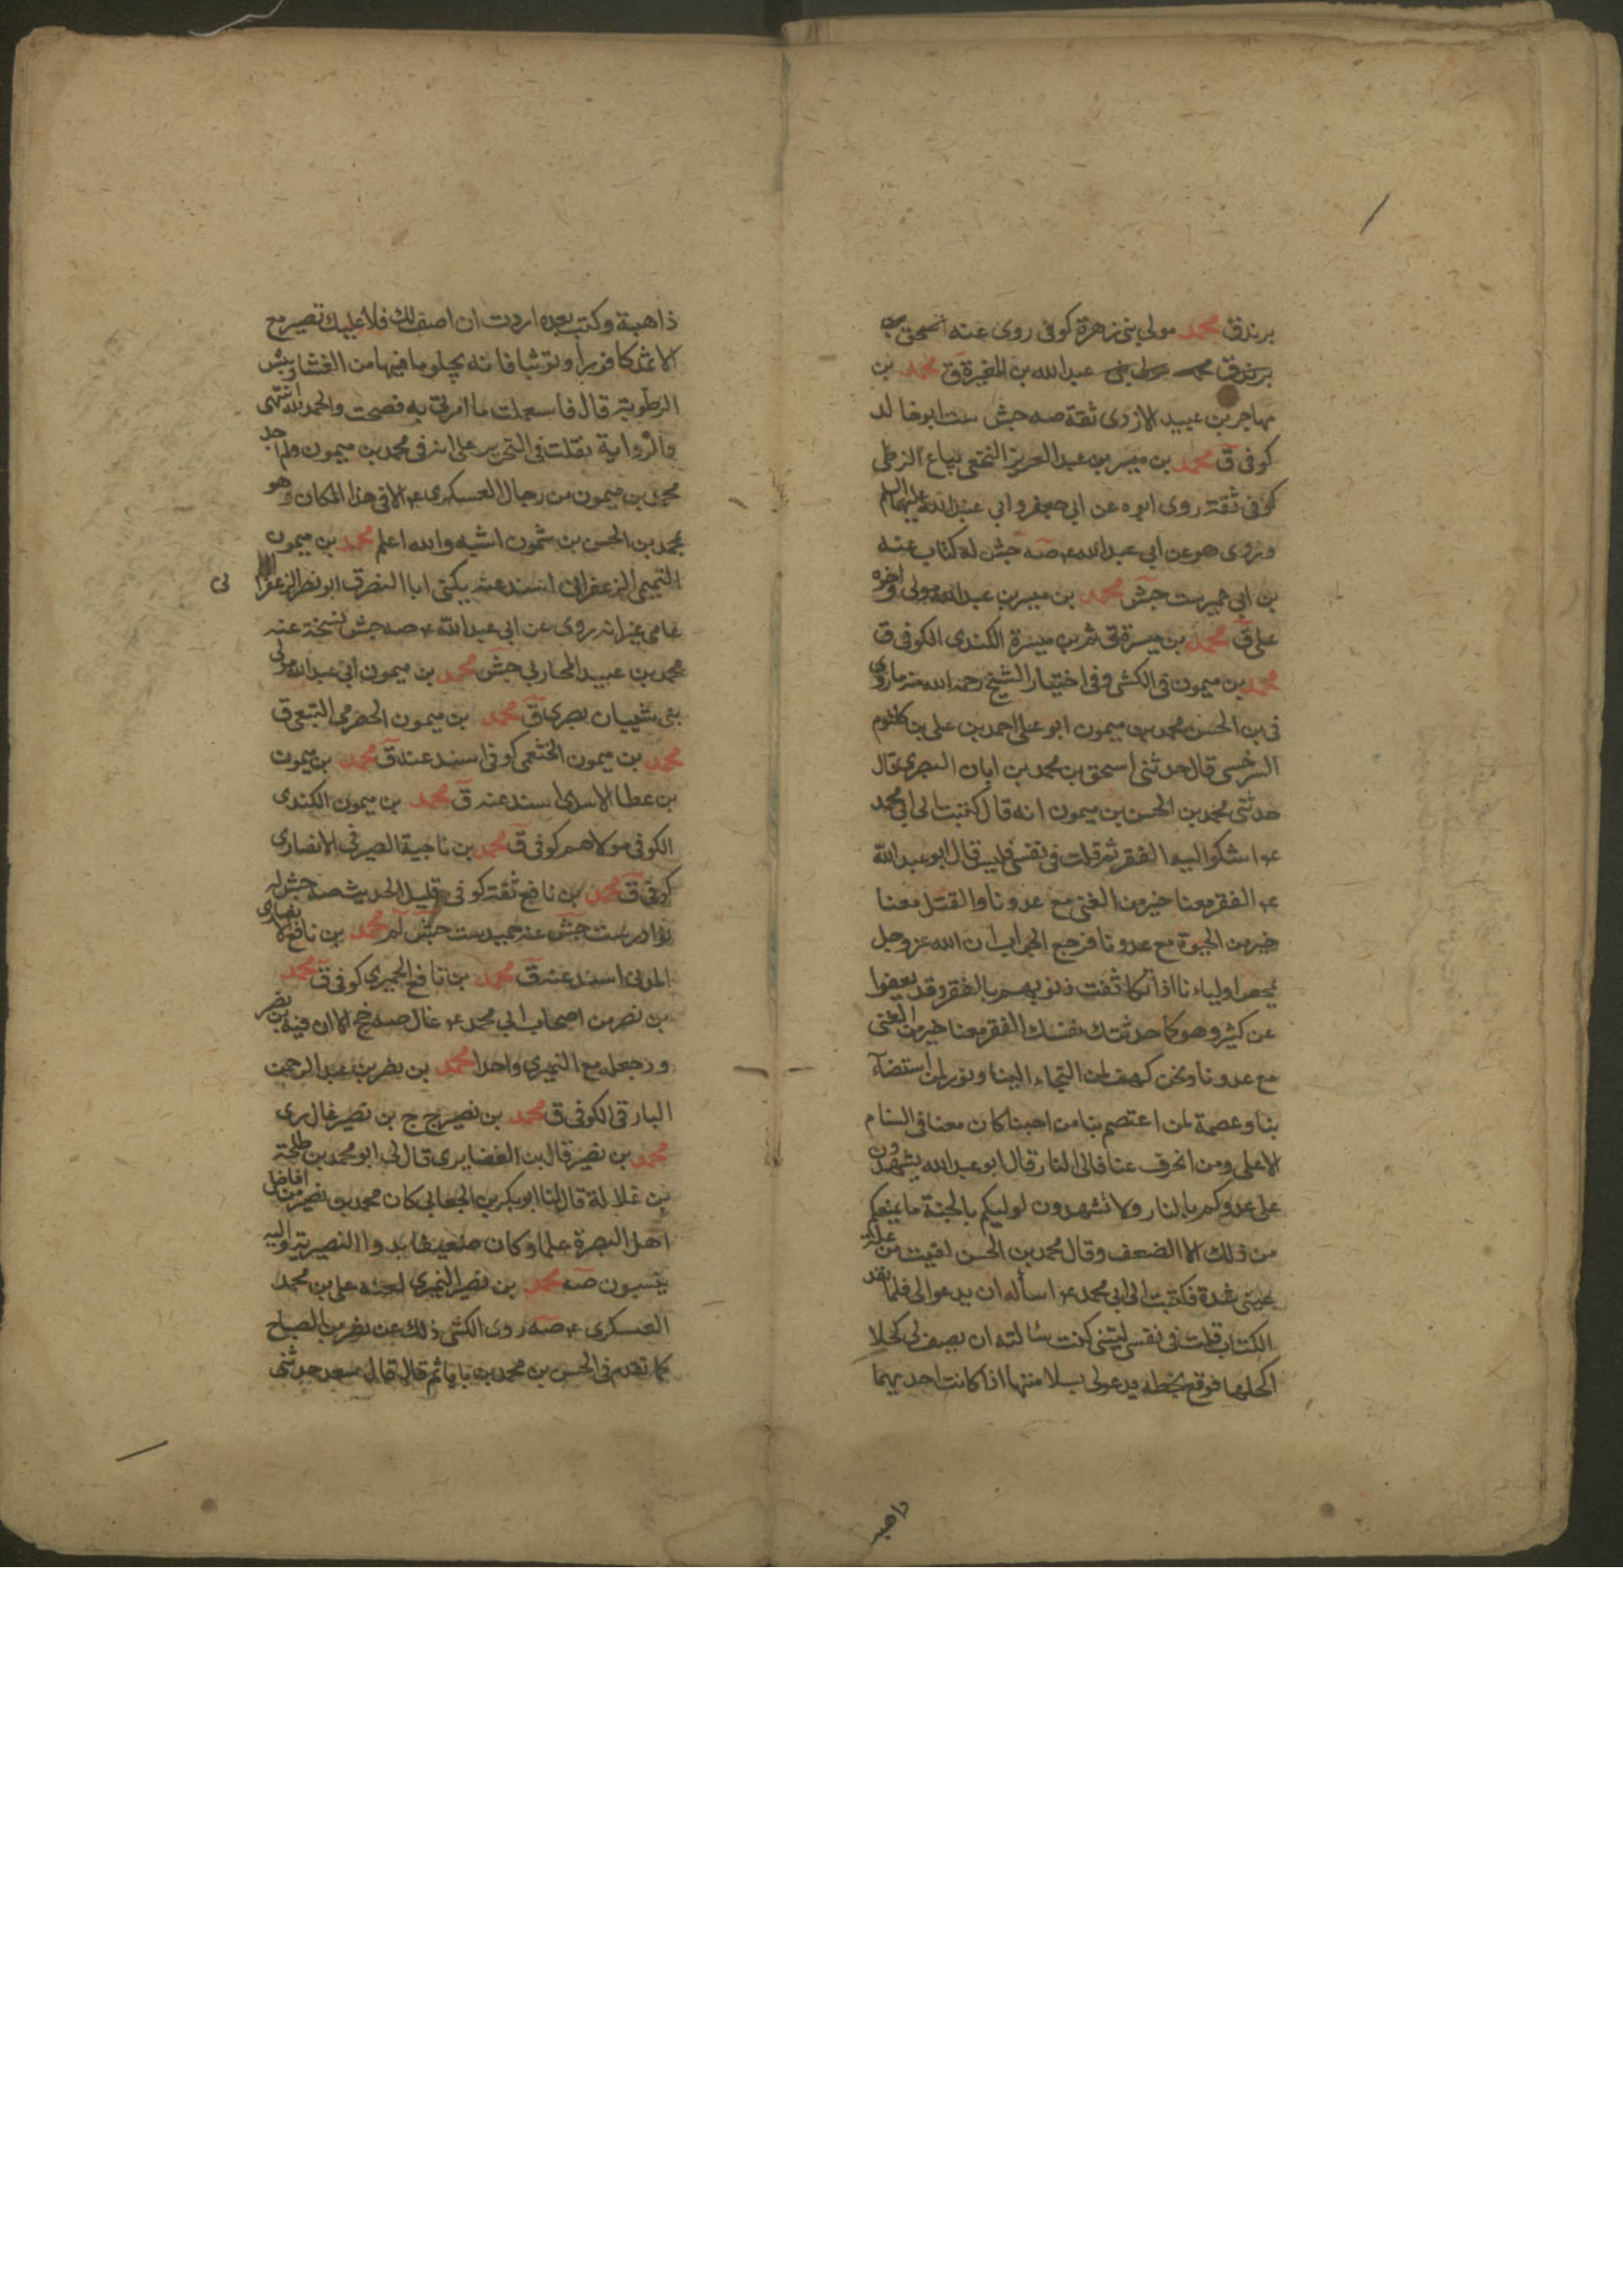 بريد ق محمد مولى بني زهرة كوفي روى عنه اسحق بن
بريد ق محمد مولى بني عبد الله بن المغيرة ق محمد بن
مهاجر بن عبيد الازدي ثقة صه جش ست ابو خالد
كوفي ق محمد بن ميسر بن عبد العزيز النخعي بياع الزطي
كوفي ثقة روى ابوه عن ابي جعفر وابي عبد الله عليهما السلم
وروى هو عن ابي عبد الله ع صه جش له كتاب عنه
بن ابي عمير ست جش محمد بن ميسر بن عبد الله مولى واخوه
على ق محمد بن ميسرة ق ثم بن ميسرة الكندي الكوفي ق
محمد بن ميمون ق الكشي وفي اختيار الشيخ رحمه الله منه ما روى
في بن الحسن محمد بن ميمون ابو علي احمد بن علي بن كلثوم
السرخسي قال حدثني اسحق بن محمد بن ابان البصري قال
حدثني محمد بن الحسن بن ميمون انه قال كتبت الى ابي محمد
ع اشكوا اليه الفقر ثم قلت في نفسي اليس قال ابو عبد الله
ع الفقر معنا خير من الغنى مع عدونا والقتل معنا
خير من الحيوة مع عدونا فرجع الجواب ان الله عز وجل
يمحص اولياءنا اذا تكاثفت ذنوبهم بالفقر وقد يعفوا
عن كثير وهو كما حدثتك نفسك الفقر معنا خير من الغنى
مع عدونا ونحن كهف لمن التجاء الينا ونور لمن استضآء
بنا وعصمة لمن اعتصم بنا من احبنا كان معنا في السنام
الاعلى ومن انحرف عنا فالى النار قال ابو عبد الله يشهدون
على عدوكم بالنار ولا تشهدون لوليكم بالجنة ما يمنعكم
من ذلك الا الضعف وقال محمد بن الحسن لقيت من علة
عيني شدة فكتبت الى ابي محمد ع اسأله ان يدعو الى فلما نفد
الكتاب قلت في نفسي ليتني كنت سالته ان يصف لي كحلا
اكحلها فوقع بخطه يدعو لي بسلامتها اذا كانت احديهما
ذاهبه
ذاهبة وكتب بعده اردت ان اصف لك فلا عليك تصير مع
الاثمد كافورا وتوتيا فانه يجلو ما فيها من الغشا وييبس
الرطوبة قال فاستعملت ما امرني به فصحت والحمد لله انتهى
والرواية نقلت في التحرير على انه في محمد بن ميمون ولم اجد
محمد بن ميمون من رجال العسكري ع الا في هذا المكان وهو
بمحمد بن الحسن بن شمون اشبه والله اعلم محمد بن ميمون
التميمي الزعفراني اسند عنه يكنى ابا النضر ق ابو نصر الزعفرا
ني
عامي غير انه روى عن ابي عبد الله ع صه جش نسخة عنه
محمد بن عبيد المحاربي جش محمد بن ميمون ابي عبد الله مولى
بني شيبان بصري ق محمد بن ميمون الحضرمي التبعي ق
محمد بن ميمون الخثعمي كوفي اسند عنه ق محمد بن ميمون
بن عطا الاسدي اسند عنه ق محمد بن ميمون الكندي
الكوفي مولاهم كوفي ق محمد بن ناجية الصيرفي الانصاري
كوفي ق محمد بن نافع ثقة كوفي قليل الحديث صه جش له
نوادر ست جش عنه حميد ست جش لم محمد بن نافع الانصاري
المدني اسند عنه ق محمد بن نافع الحميري كوفي ق محمد
بن نصر من اصحاب ابي محمد ع غال صه خج الا ان فيه بن نصير
ود جعله مع النميري واحدا محمد بن نصر بن عبد الرحمن
البارقي الكوفي ق محمد بن نصير ج ج بن نصير غال ري
محمد بن نصير قال بن الغضايري قال لي ابو محمد بن طلحة
بن غلالة قال لنا ابو بكر بن الجعابي كان محمد بن نصير من افاضل
اهل البصرة علما وكان ضعيفا بدوا النصيرية واليه
ينسبون صه محمد بن نصير النميري لعنه علي بن محمد
العسكري ع صه روى الكشي ذلك عن نصر بن الصباح
كما تقدم في الحسن بن محمد بن بابا ثم قال قال سعد حدثني